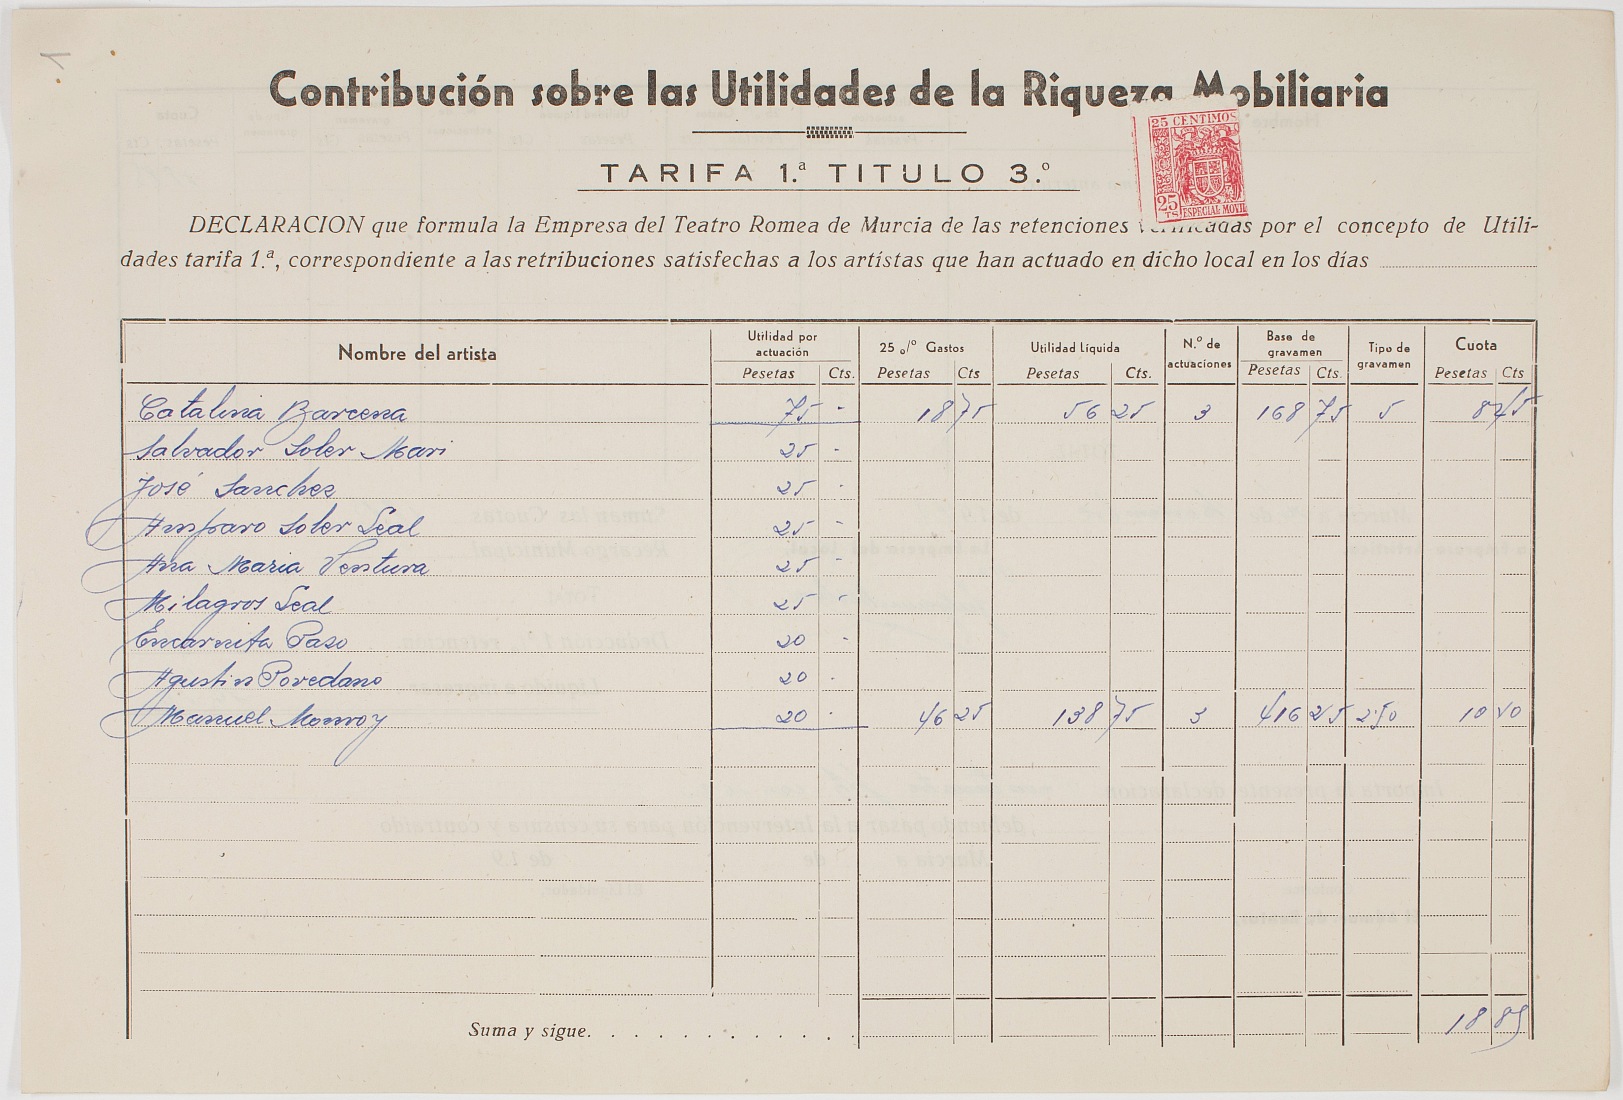 1
Contribución sobre las Utilidades de la Riqueza Mobiliaria
25 CENTIMOS
25
TS ESPECIAL MOVIL
TARIFA 1.ª TITULO 3.º
DECLARACION que formula la Empresa del Teatro Romea de Murcia de las retenciones verificadas por el concepto de Utili-
dades tarifa 1.ª, correspondiente a las retribuciones satisfechas a los artístas que han actuado en dicho local en los días
Nombre del artista Utilidad por actuación 25 o/o Gastos Utilidad Líquida N.º de actuaciones Base de gravamen Tipo de gravamen Cuota
Pesetas Cts. Pesetas Cts Pesetas Cts. Pesetas Cts. Pesetas Cts
Catalina Barcena 75 - 18 75 56 25 3 168 75 5 8 45
Salvador Soler Mari 25 -
José Sanchez 25 -
Amparo Soler Leal 25 -
Ana Maria Ventura 25 -
Milagros Leal 25 -
Encarnita Paso 20 -
Agustin Povedano 20 -
Manuel Monroy 20 - 46 25 138 75 3 416 25 2'50 10 40
Suma y sigue. . . . . . . . . . 18 85